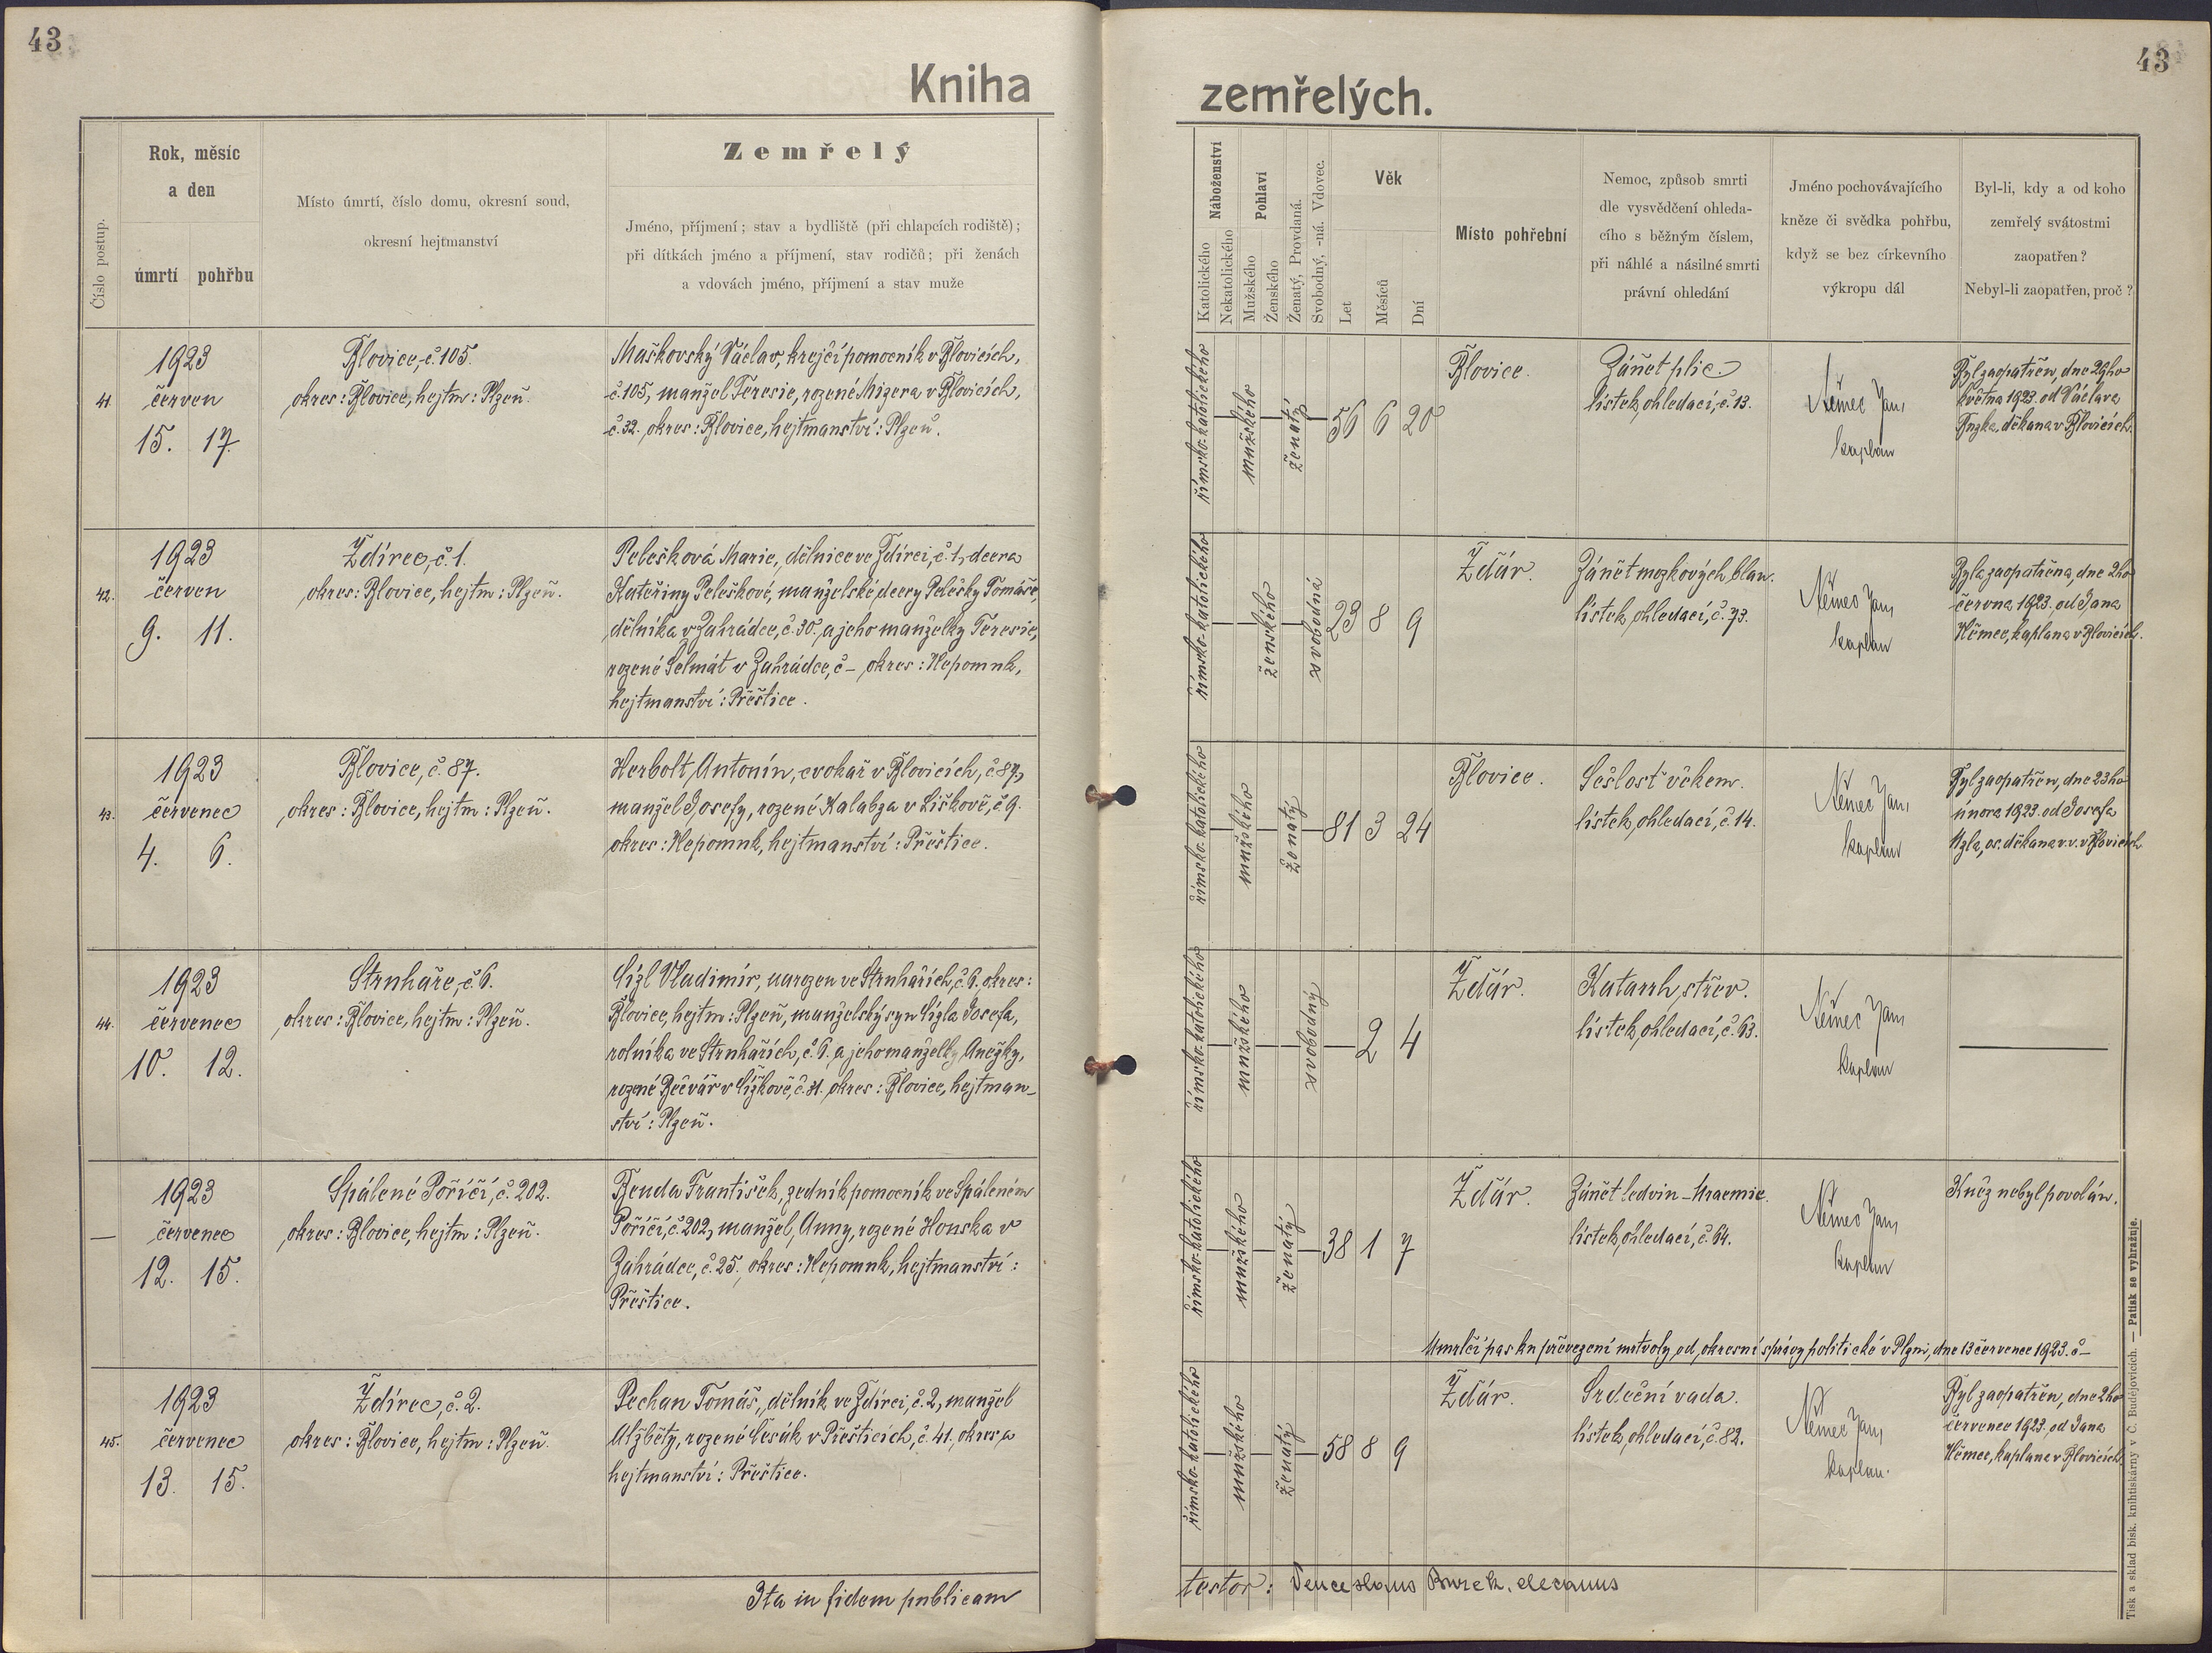 43
Kniha
Číslo postup.
Rok, měsíc
a den
úmrtí pohřbu
Místo úmrtí, číslo domu, okresní soud,
okresní hejtmanství
Zemřelý
Jméno, příjmení; stav a bydliště (při chlapcích rodiště);
při dítkách jméno a příjmení, stav rodičů; při ženách
a vdovách jméno, příjmení a stav muže
41
1923
červen
15. 17.
Blovice, č. 105.
okres: Blovice, hejtm: Plzeň.
Maškovský Václav, krejčí pomocník v Blovicích,
č. 105, manžel Teresie, rozené Mizera v Blovicích,
č. 32. okres: Blovice, hejtmanství: Plzeň.
42.
1923
červen
9. 11.
Ždírec, č. 1.
okres: Blovice, hejtm: Plzeň.
Pelešková Marie, dělnice ve Ždírci, č. 1, dcera
Kateřiny Peleškové, manželské dcery Pelešky Tomáše,
dělníka v Zahrádce, č. 30, a jeho manželky Teresie,
rozené Selmát v Zahrádce, č – okres: Nepomuk,
hejtmanství: Přeštice.
43.
1923
červenec
4. 6.
Blovice, č. 87.
okres: Blovice, hejtm: Plzeň.
Herbolt Antonín, cvokař v Blovicích, č 87,
manžel Josefy, rozené Kalabza v Liškově, č 9.
okres: Nepomuk, hejtmanství: Přeštice.
44.
1923
červenec
10. 12.
Struhaře, č. 6.
okres: Blovice, hejtm: Plzeň.
Sígl Vladimír, narozen ve Struhařích, č. 6. okres:
Blovice, hejtm: Plzeň, manželský syn Sígla Josefa,
rolníka ve Struhařích, č. 6. a jeho manželky Anežky,
rozené Bečvář v Čížkově, č. 31. okres: Blovice, hejtman-
ství: Plzeň.
—
1923
červenec
12. 15.
Spálené Poříčí, č. 202.
okres: Blovice, hejtm: Plzeň.
Benda František, zedník pomocník ve Spáleném
Poříčí, č. 202, manžel Anny, rozené Houska v
Zahrádce, č. 25, okres: Nepomuk, hejtmanství:
Přeštice.
45.
1923
červenec
13. 15.
Ždírec, č. 2.
okres: Blovice, hejtm: Plzeň.
Pechan Tomáš, dělník ve Ždírci, č. 2, manžel
Alžběty, rozené Česák v Přešticích, č. 41, okres a
hejtmanství: Přeštice.
Ita in fidem publicam
43
zemřelých.
Náboženství
Katolického
Nekatolického
Pohlaví
Mužského
Ženského
Ženatý, Provdaná.
Svobodný, -ná. Vdovec.
Věk
Let
Měsíců
Dní
Místo pohřební
Nemoc, způsob smrti
dle vysvědčení ohleda-
cího s běžným číslem,
při náhlé a násilné smrti
právní ohledání
Jméno pochovávajícího
kněze či svědka pohřbu,
když se bez církevního
výkropu dál
Byl-li, kdy a od koho
zemřelý svátostmi
zaopatřen?
Nebyl-li zaopatřen, proč?
římsko-katolického
mužského
ženatý
56 6 20
Blovice.
Zánět plic.
lístek ohledací, č. 13.
Němec Jan,
kaplan
Byl zaopatřen, dne 29ho
května 1923. od Václava
děkana v Blovicích.
římsko-katolického
ženského
svobodná
23 8 9
Žďár.
Zánět mozkových blan.
lístek ohledací, č. 73.
Němec Jan,
kaplan
Byla zaopatřena, dne 2ho
června 1923. od Jana
Němec, kaplana v Blovicích.
římsko-katolického
mužského
ženatý
81 3 24
Blovice.
Sešlost věkem.
lístek ohledací, č. 14.
Němec Jan,
kaplan
Byl zaopatřen, dne 23ho
února 1923. od Josefa
děkana v.v. v Blovicích
římsko-katolického
mužského
svobodný
2 4
Žďár.
Katarrh střev.
lístek ohledací, č. 63.
Němec Jan,
kaplan
římsko-katolického
mužského
ženatý
38 1 7
Žďár.
Zánět ledvin – Uraemie.
lístek ohledací, č. 64.
Němec Jan,
kaplan
Kněz nebyl povolán.
Umrlčí pas ku převezení mrtvoly od okresní správy politické v Plzni, dne 13 července 1923. č –
římsko-katolického
mužského
ženatý
58 8 9
Žďár.
Srdeční vada.
lístek ohledací, č. 82.
Němec Jan,
kaplan.
Byl zaopatřen, dne 2ho
července 1923. od Jana
Němec, kaplana v Blovicích.
testor: Venceslaus decanus
Tisk a sklad bisk. knihtiskárny v Č. Budějovicích. — Patisk se vyhražuje.